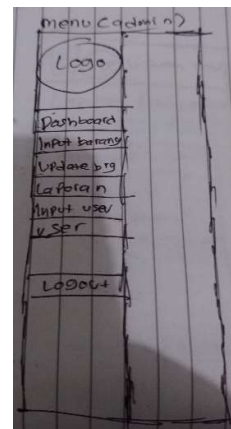 menu (admin)
Logo
Dashboard
Input barang
Update brg
Laporan
Input user
User
Logout